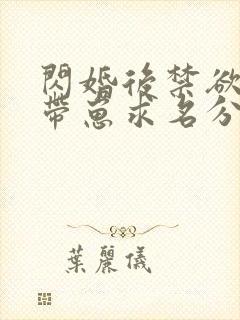 閃婚後禁欲
帶崽求名分
葉麗儀